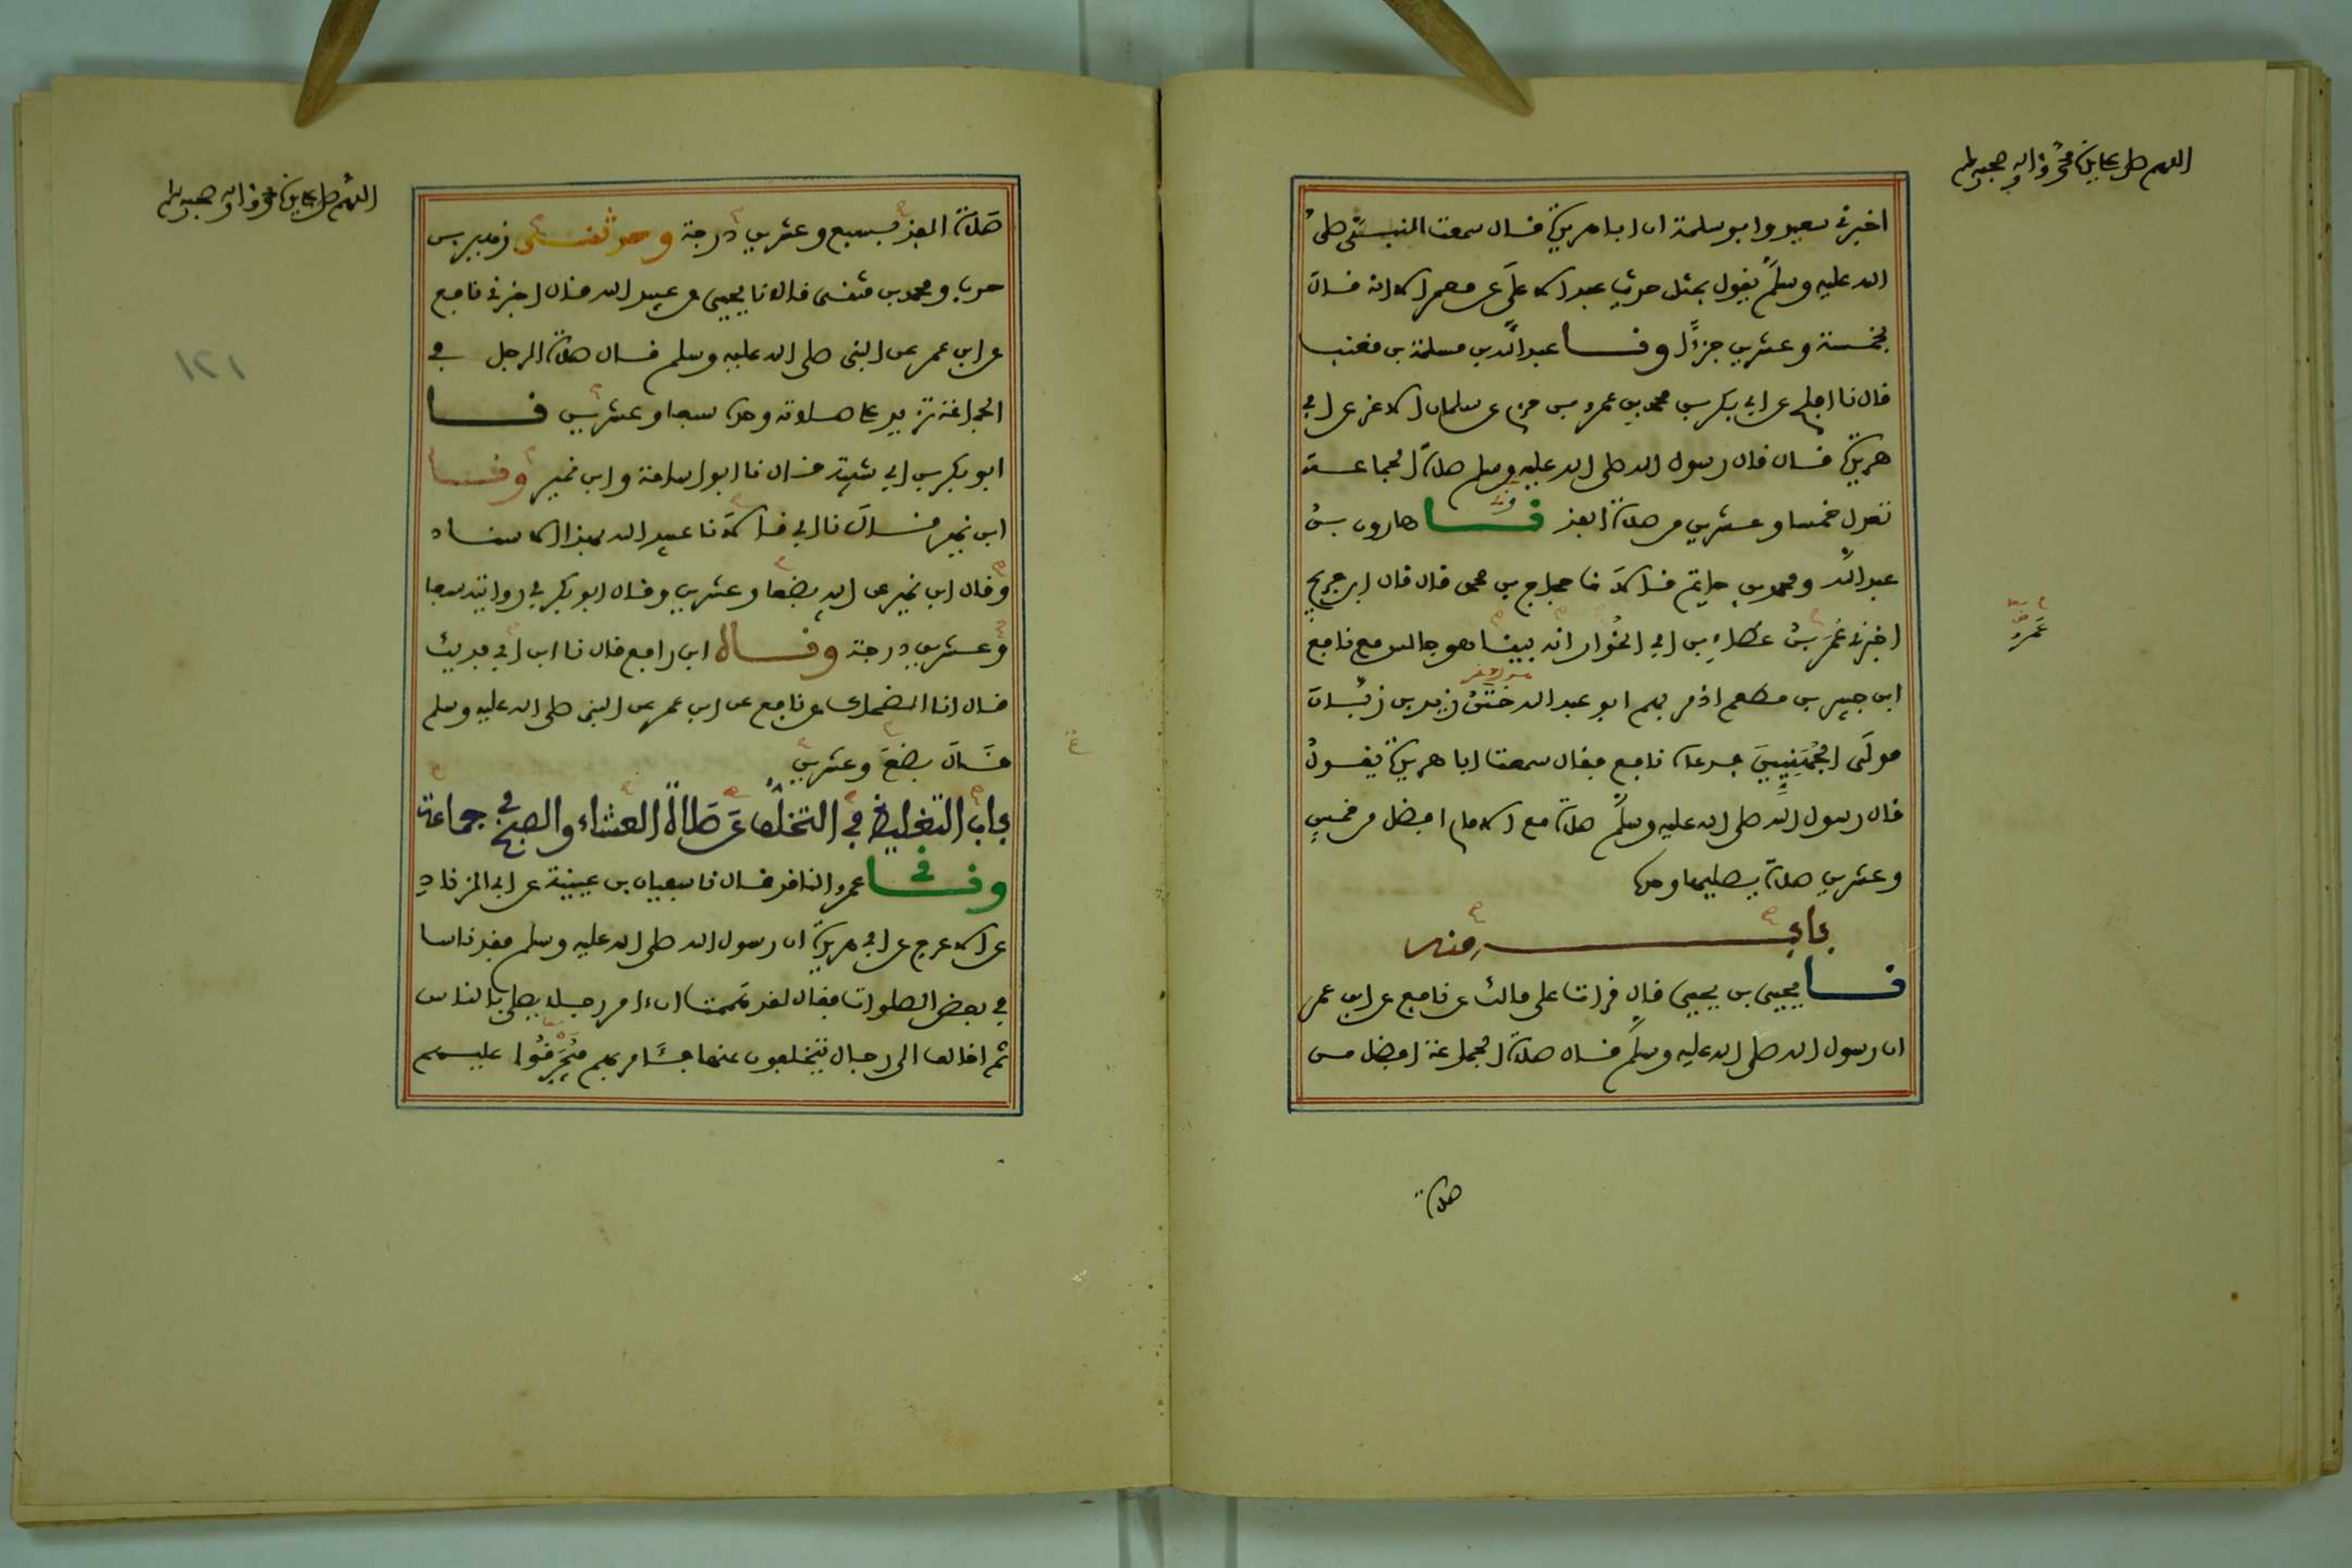 اللهم صل على سيدنا محمد وآله وصحبه وسلم
اخبرني سعيد وابو سلمة ان ابا هريرة قال سمعت النبي صلى
الله عليه وسلم يقول بمثل حديث عبد الاعلى عن معمر الا انه قال
بخمسة وعشرين جزءا ونا عبد الله بن مسلمة بن قعنب
قال نا افلح عن ابي بكر بن محمد بن عمرو بن حزم عن سلمان الاغر عن ابي
هريرة قال قال رسول الله صلى الله عليه وسلم صلاة الجماعة
تعدل خمسا وعشرين من صلاة الفذ نا هارون بن
عبد الله ومحمد بن حاتم قالا نا حجاج بن محمد قال قال ابن جريج
اخبرني عمر بن عطاء بن ابي الخوار انه بينا هو جالس مع نافع
عمرو
ابن جبير بن مطعم اذ مر بهم ابو عبد الله ختن زيد بن زبان
مولى الجهنيين فدعاه نافع فقال سمعت ابا هريرة يقول
قال رسول الله صلى الله عليه وسلم صلاة مع الامام افضل من خمس
وعشرين صلاة يصليها وحده
باب منه
نا يحيى بن يحيى قال قرات على مالك عن نافع عن ابن عمر
ان رسول الله صلى الله عليه وسلم قال صلاة الجماعة افضل من
صلاة
اللهم صل على سيدنا محمد وآله وصحبه وسلم
صلاة الفذ بسبع وعشرين درجة وحدثني زهير بن
حرب ومحمد بن مثنى قالا نا يحيى عن عبيد الله قال اخبرني نافع
عن ابن عمر عن النبي صلى الله عليه وسلم قال صلاة الرجل في
الجماعة تزيد على صلاته وحده سبعا وعشرين نا
ابو بكر بن ابي شيبة قال نا ابو اسامة وابن نمير ونا
ابن نمير قال نا ابي قالا نا عبيد الله بهذا الاسناد
وقال ابن نمير عن ابيه بضعا وعشرين وقال ابو بكر في روايته سبعا
وعشرين درجة وناه ابن رافع قال نا ابن ابي فديك
قال انا الضحاك عن نافع عن ابن عمر عن النبي صلى الله عليه وسلم
قال بضع وعشرين
باب التغليظ في التخلف عن صلاة العشاء والصبح في جماعة
وني عمرو الناقد قال نا سفيان بن عيينة عن ابي الزناد
عن الاعرج عن ابي هريرة ان رسول الله صلى الله عليه وسلم فقد ناسا
في بعض الصلوات فقال لقد هممت ان ءامر رجلا يصلي بالناس
ثم اخالف الى رجال يتخلفون عنها فآمر بهم فيحرقوا عليهم
١٢١